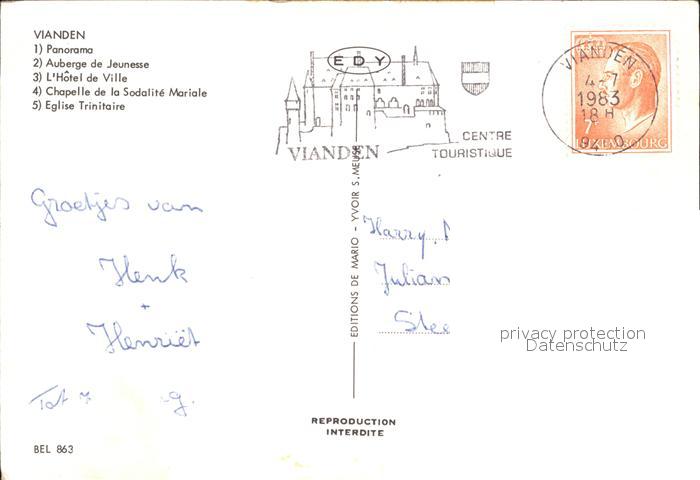 VIANDEN
1) Panorama
2) Auberge de Jeunesse
3) L'Hôtel de Ville
4) Chapelle de la Sodalité Mariale
5) Eglise Trinitaire
EDY
VIANDEN
CENTRE
TOURISTIQUE
VIANDEN
4-7
1983
18 H
LUXEMBOURG
Groetjes van
Henk
+
Henriët
Tot
EDITIONS DE MARIO - YVOIR S. MEUSE
Harry
Julian
Stee
privacy protection
Datenschutz
REPRODUCTION
INTERDITE
BEL 863